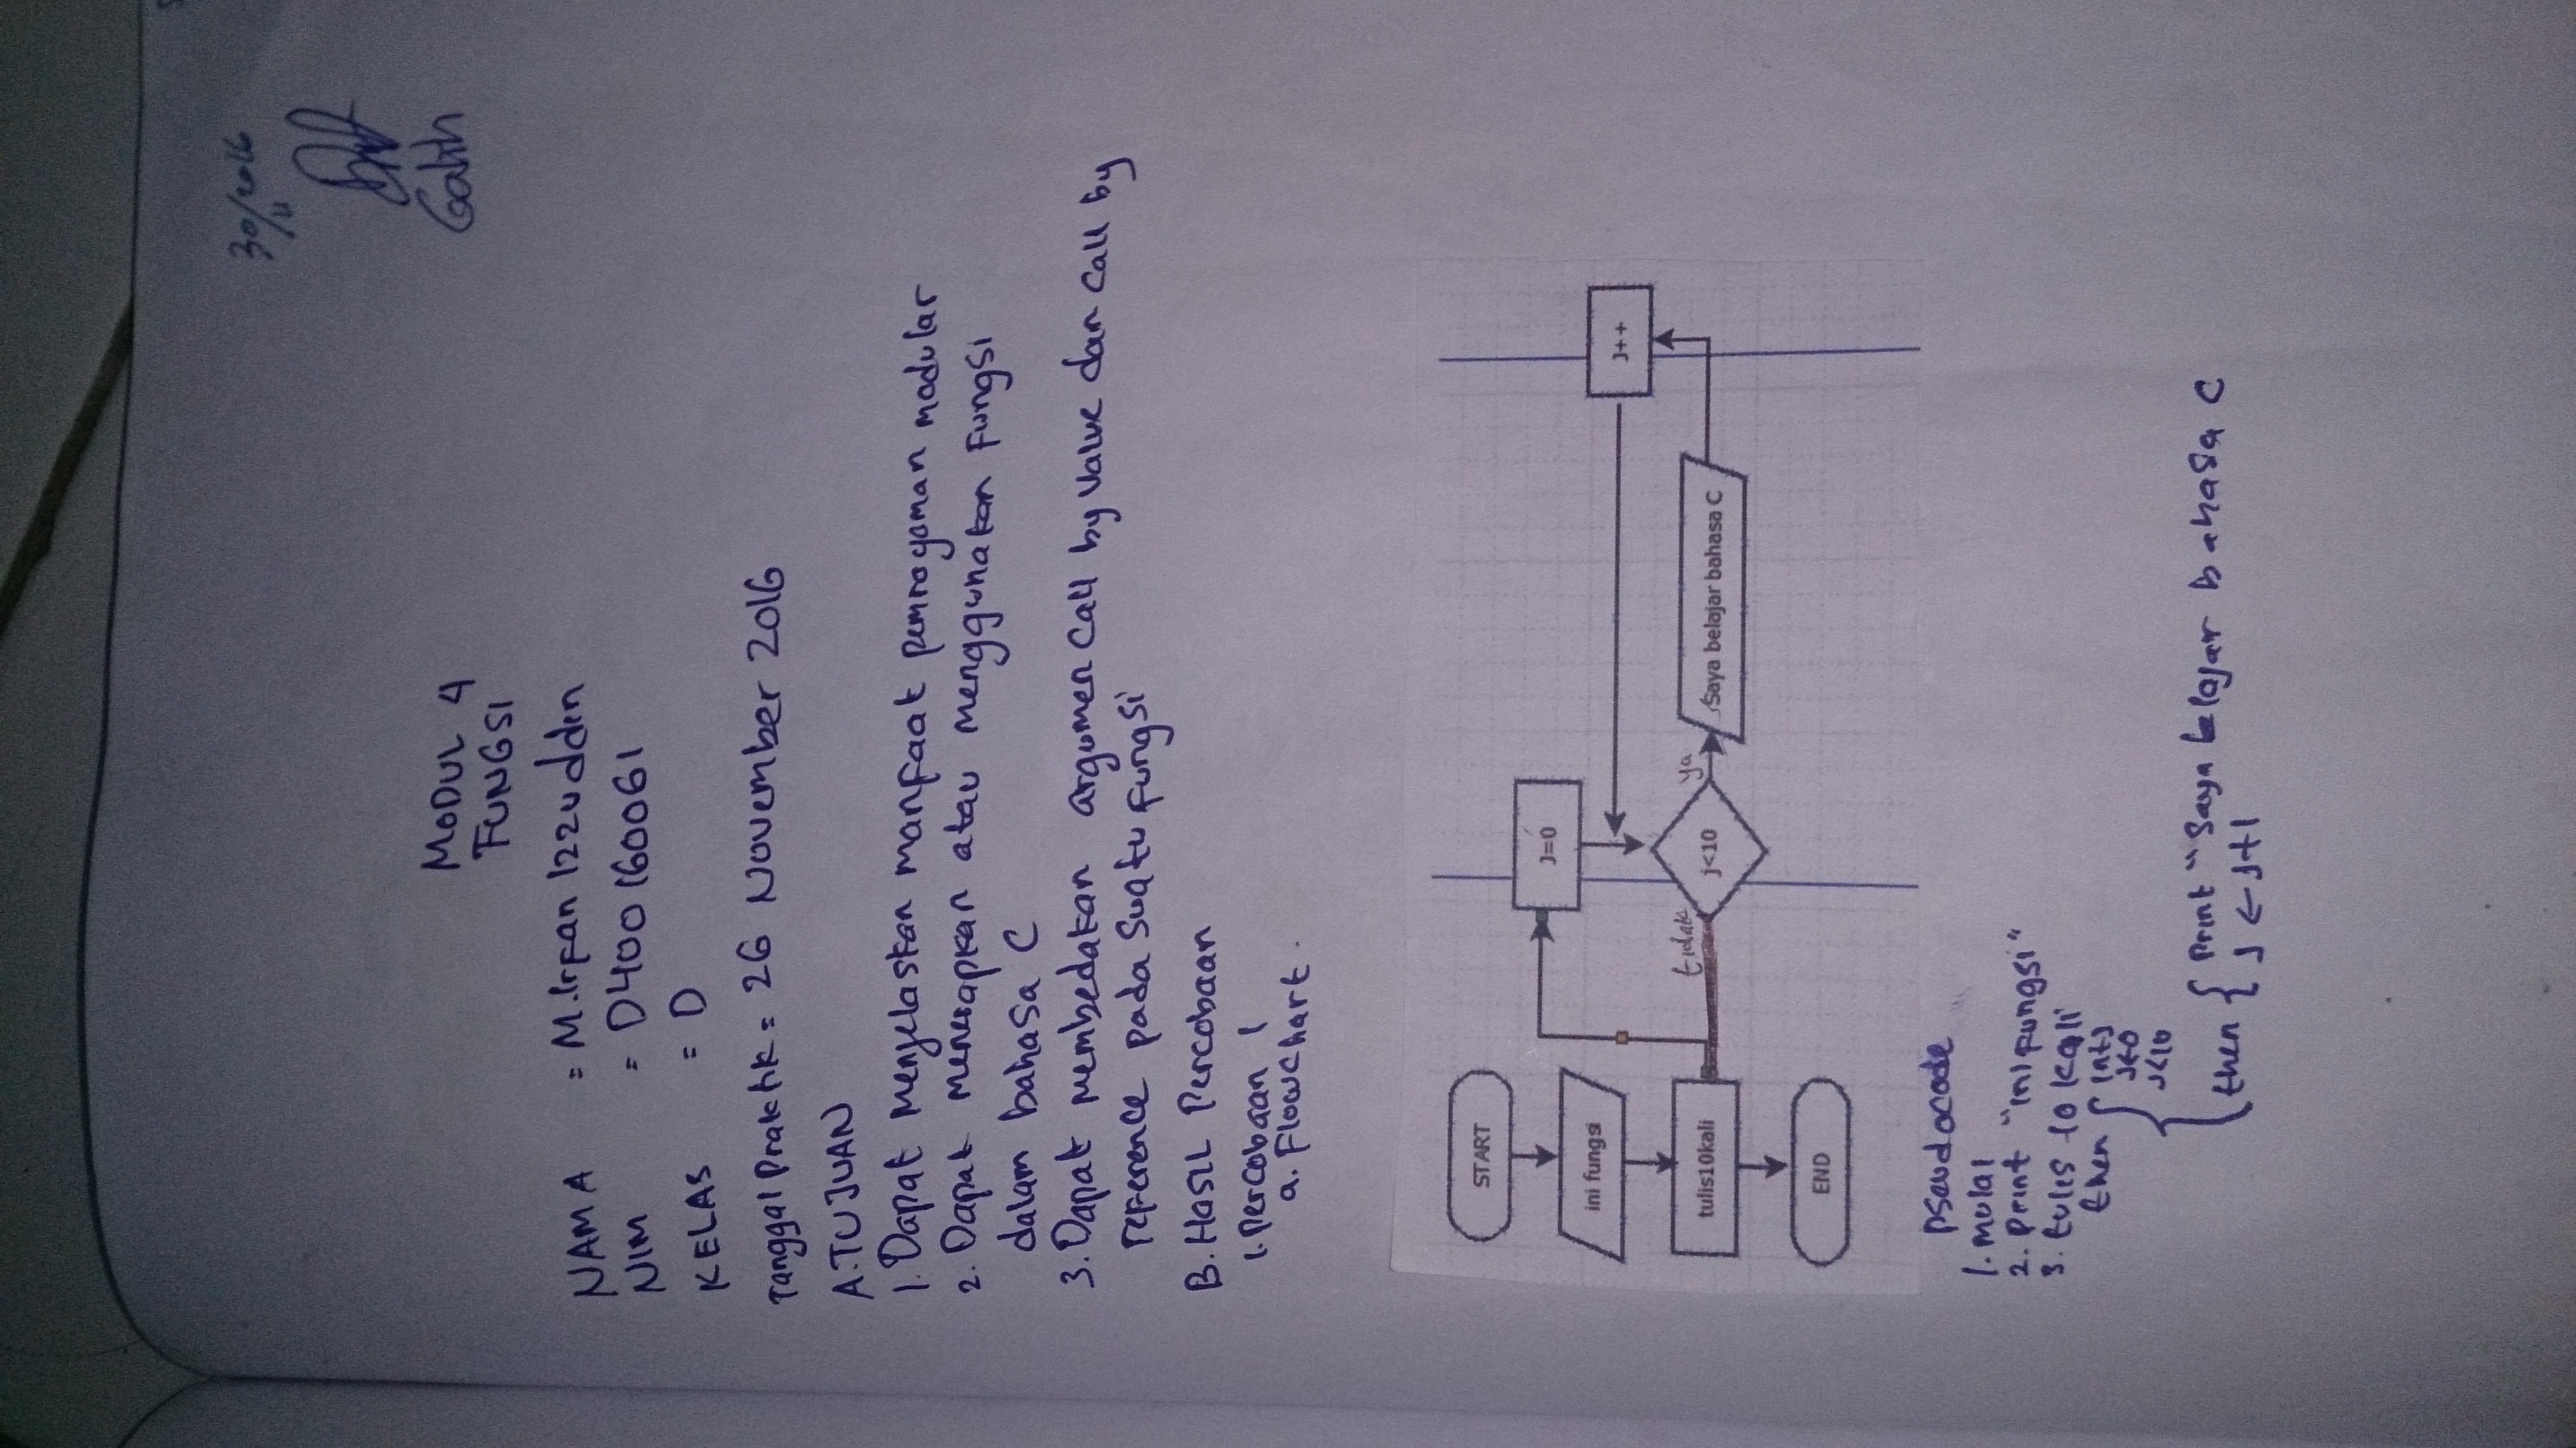 30/11/2016
Galih
MODUL 4
FUNGSI
NAMA = M.Irfan Izzuddin
NIM = D400160061
KELAS = D
Tanggal Praktik = 26 November 2016
A. TUJUAN
1. Dapat menjelaskan manfaat pemrograman modular
2. Dapat menerapkan atau menggunakan fungsi
dalam bahasa C
3. Dapat membedakan argumen call by value dan call by
reference pada suatu fungsi
B. Hasil Percobaan
1. Percobaan 1
a. Flowchart.
START
J=0
ini fungsi
J++
tidak
ya
tulis10kali
j<10
Saya belajar bahasa C
END
Pseudocode
1. mulai
2. print "ini fungsi"
3. tulis 10 kali
then { int j
j←0
j<10
then { print "Saya belajar bahasa C
j ← j+1